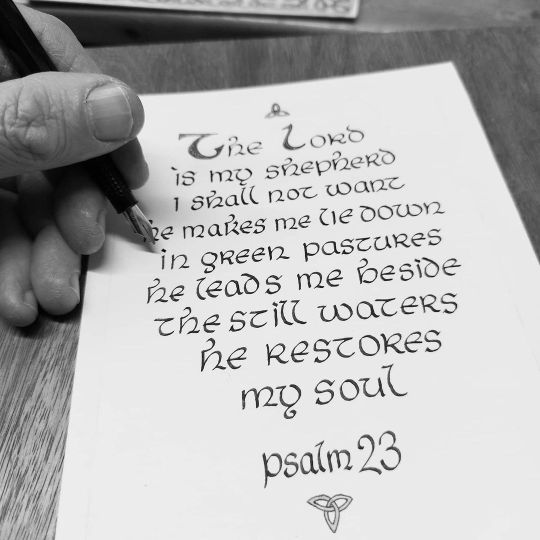 The Lord
is my shepherd
i shall not want
he makes me lie down
in green pastures
he leads me beside
the still waters
he restores
my soul
psalm 23